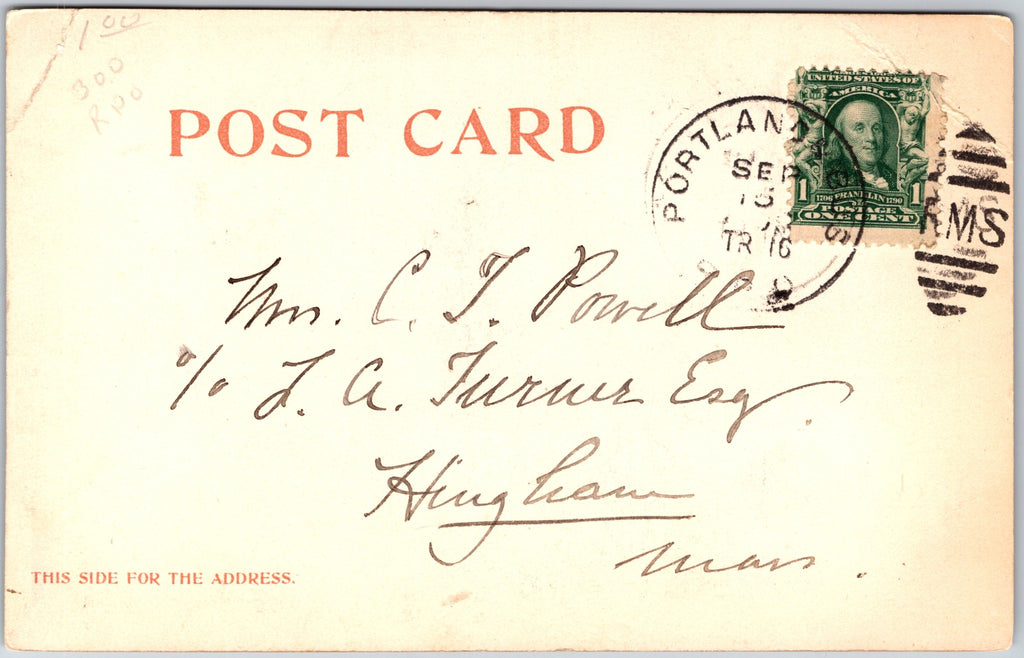 1.00
300
RPO
POST CARD
UNITED STATES OF
AMERICA
1 1706 FRANKLIN 1790 1
POSTAGE
ONE CENT
PORTLAND
SEP
15
TR 16
RMS
Mrs. C. T. Powell
c/o L. A. Turner Esq.
Hingham
Mass.
THIS SIDE FOR THE ADDRESS.